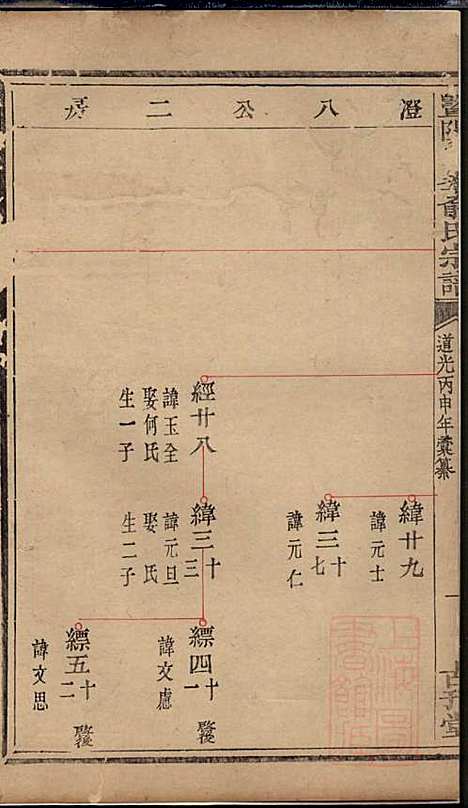 澄八公二房
暨陽孝義俞氏宗譜
道光丙申年彙纂
經廿八
諱玉全
娶何氏
生一子
緯廿九
諱元士
緯三十七
諱元仁
緯三十三
諱元旦
娶氏
生二子
縹四十一
諱文慮
啟後
縹五十二
諱文思
啟後